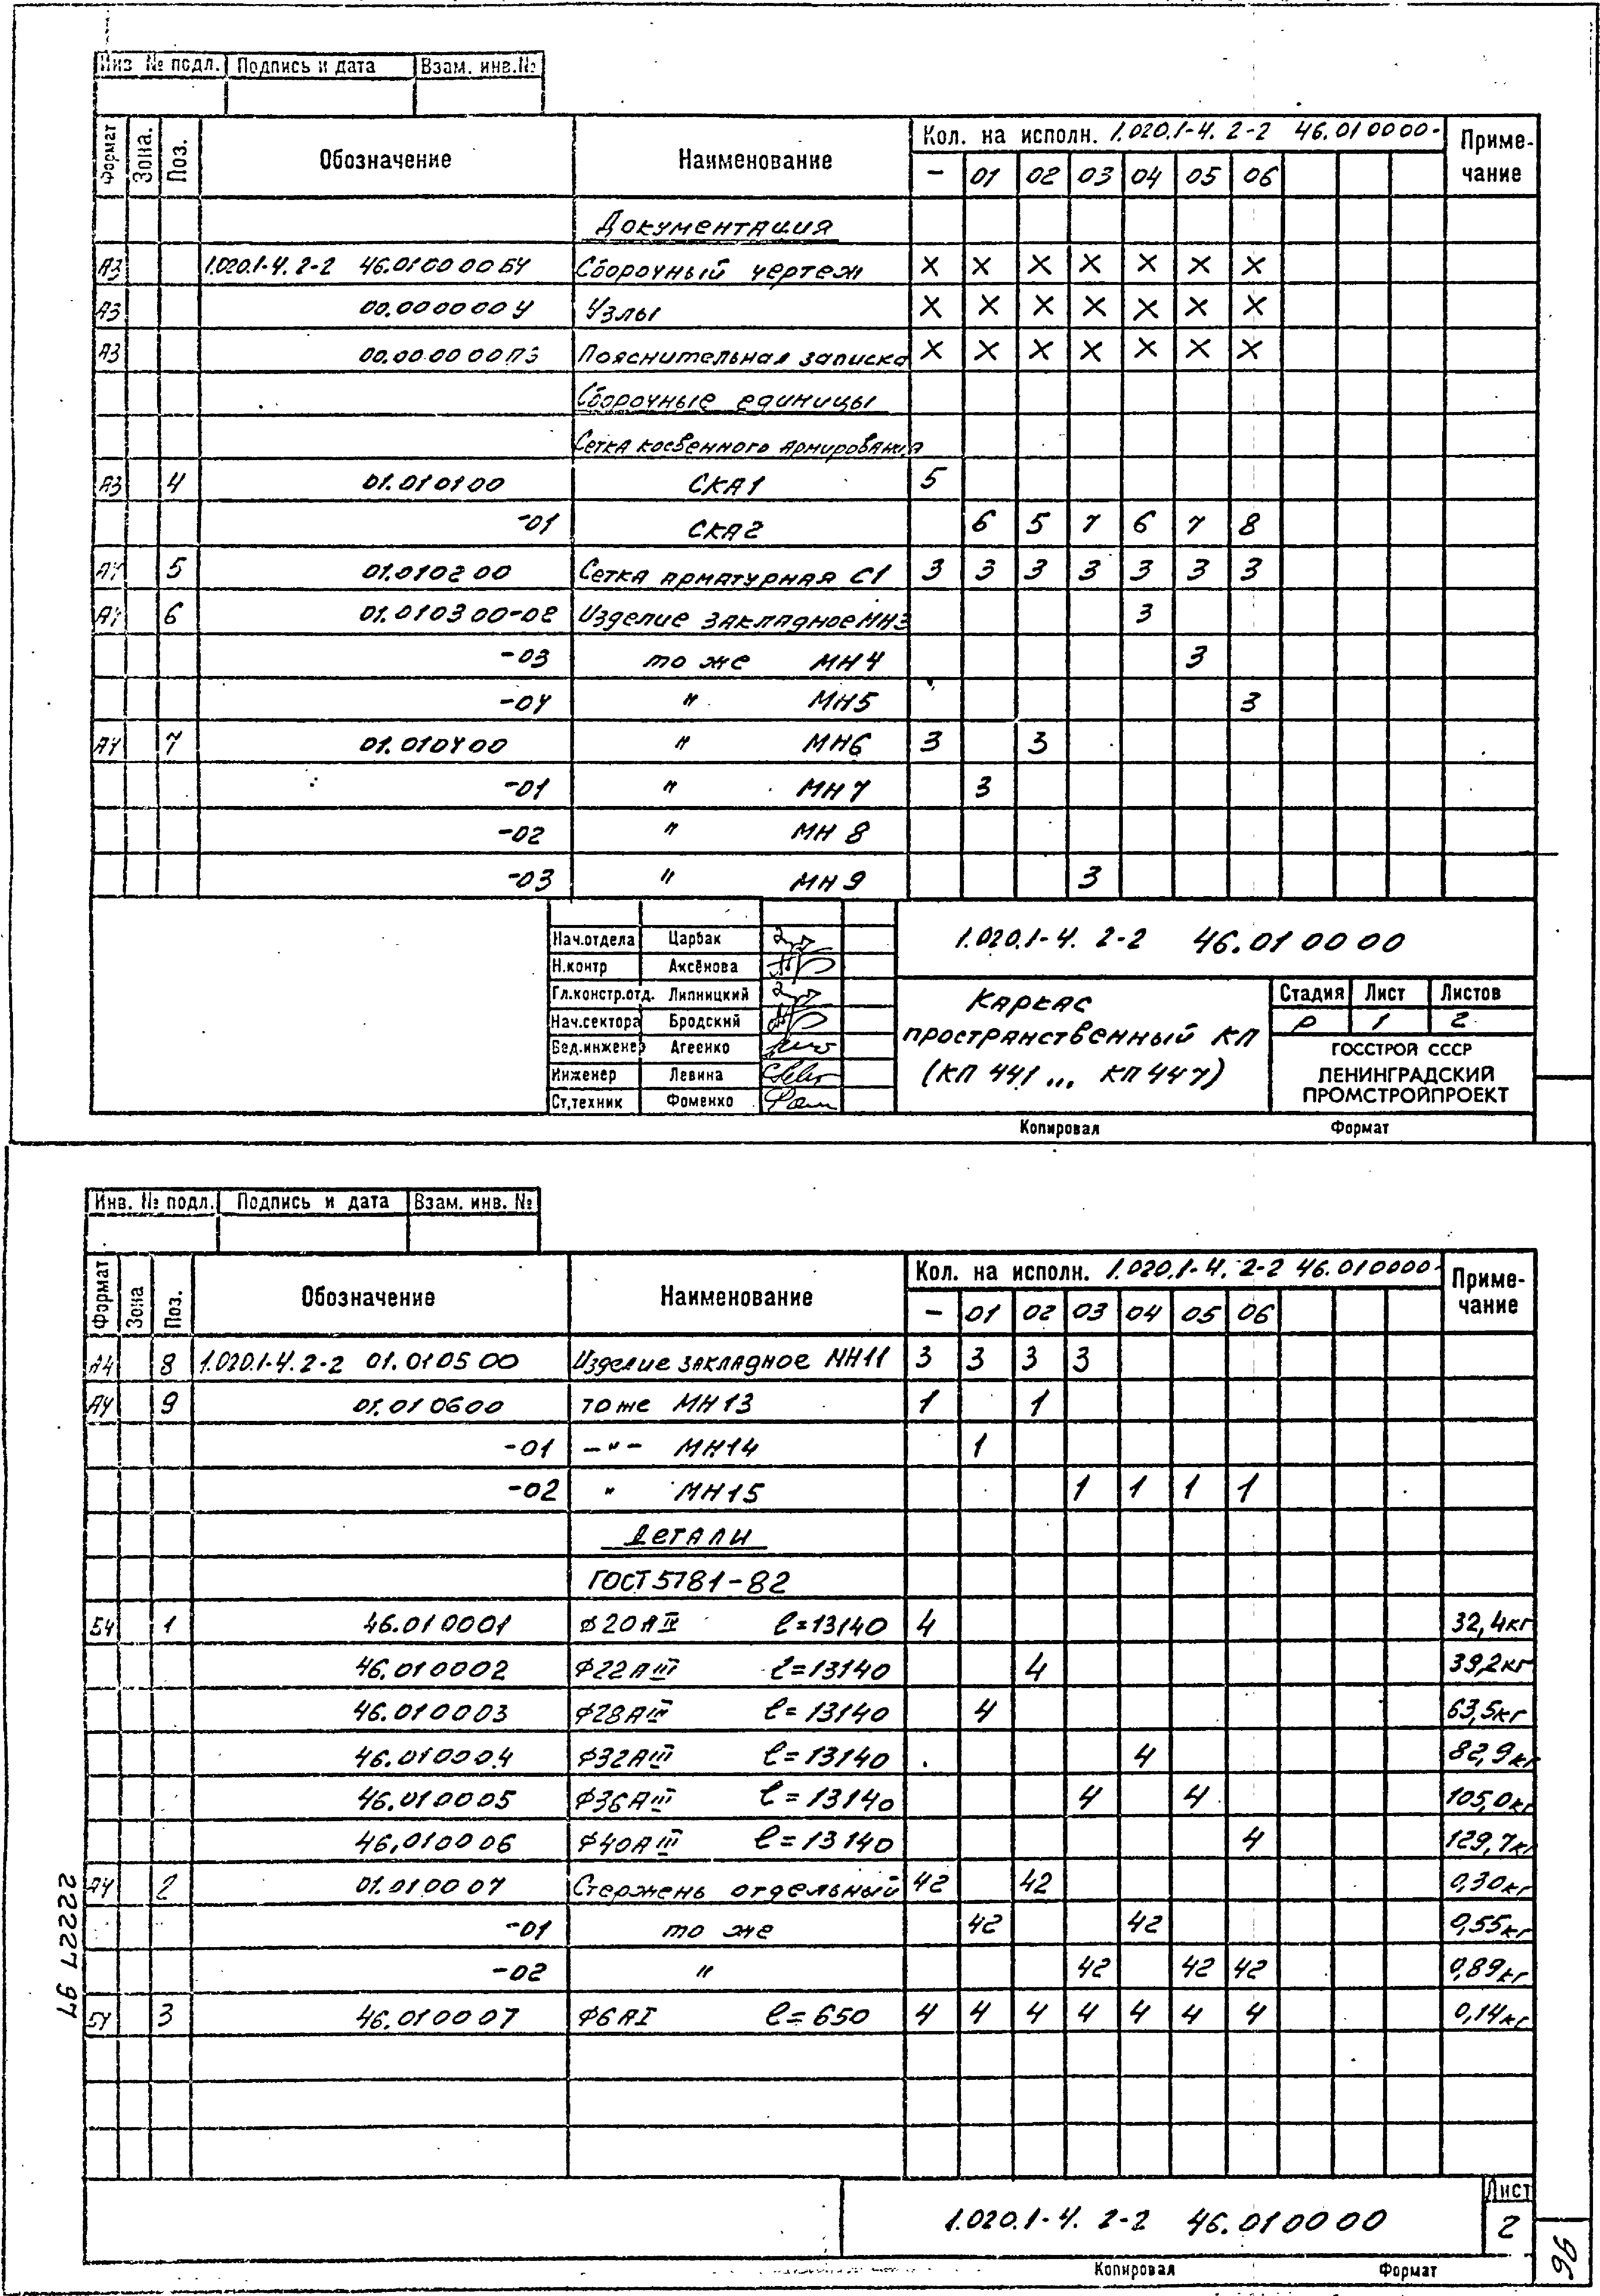 Инв № подл. Подпись и дата Взам. инв.№
Формат Зона. Поз. Обозначение Наименование Кол. на исполн. 1.020.1-4. 2-2 46.01 00 00- Приме-
чание
- 01 02 03 04 05 06
Документация
А3 1.020.1-4. 2-2 46.01 00 00 СЧ Сборочный чертеж X X X X X X X
А3 00.00 00 00 У Узлы X X X X X X X
А3 00.00 00 00 ПЗ Пояснительная записка X X X X X X X
Сборочные единицы
Сетка косвенного армирования
А3 4 01.01 01 00 СКА1 5
-01 СКА2 6 5 7 6 7 8
А4 5 01.01 02 00 Сетка арматурная С1 3 3 3 3 3 3 3
А4 6 01.01 03 00-02 Изделие закладное МН3 3
-03 то же МН4 3
-04 " МН5 3
А4 7 01.01 04 00 " МН6 3 3
-01 " МН7 3
-02 " МН8
-03 " МН9 3
Нач.отдела Царбак
Н.контр Аксёнова
Гл.констр.отд. Липницкий
Нач.сектора Бродский
Вед.инженер Агеенко
Инженер Левина
Ст.техник Фоменко
1.020.1-4. 2-2 46.01 00 00
Каркас
пространственный КП
(КП 441 ... КП 447)
Стадия Лист Листов
Р 1 2
ГОССТРОЙ СССР
ЛЕНИНГРАДСКИЙ
ПРОМСТРОЙПРОЕКТ
Копировал Формат
Инв. № подл. Подпись и дата Взам. инв. №
Формат Зона Поз. Обозначение Наименование Кол. на исполн. 1.020.1-4. 2-2 46.01 00 00- Приме-
чание
- 01 02 03 04 05 06
А4 8 1.020.1-4. 2-2 01.01 05 00 Изделие закладное МН11 3 3 3 3
А4 9 01.01 06 00 то же МН13 1 1
-01 -"- МН14 1
-02 " МН15 1 1 1 1
Детали
ГОСТ 5781-82
Б4 1 46.01 00 01 ф20АIII ℓ=13140 4 32,4кг
46.01 00 02 ф22АIII ℓ=13140 4 39,2кг
46.01 00 03 ф28АIII ℓ=13140 4 63,5кг
46.01 00 04 ф32АIII ℓ=13140 4 82,9кг
46.01 00 05 ф36АIII ℓ=13140 4 4 105,0кг
46.01 00 06 ф40АIII ℓ=13140 4 129,7кг
А4 2 01.01 00 07 Стержень отдельный 42 42 0,30кг
-01 то же 42 42 0,55кг
-02 " 42 42 42 0,89кг
Б4 3 46.01 00 07 ф6АI ℓ=650 4 4 4 4 4 4 4 0,14кг
22227 97
1.020.1-4. 2-2 46.01 00 00
Лист
2
Копировал Формат
96